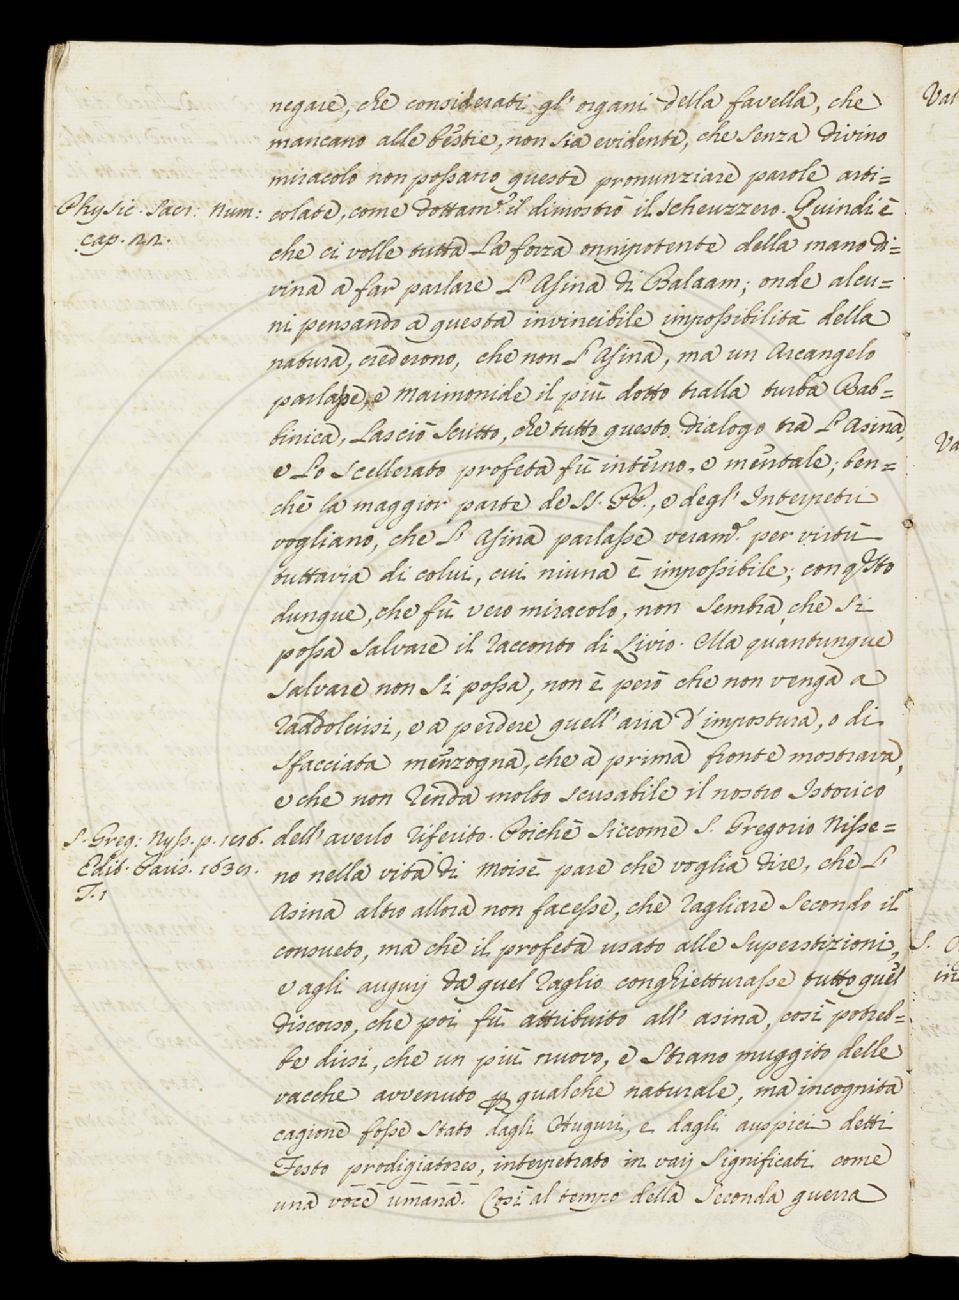 negare, che considerati gl' organi della favella, che
mancano alle bestie, non sia evidente, che senza divino
miracolo non possano queste pronunziare parole arti=
Physic. Sacr: Num:
cap. 22.
colate, come dottam.e il dimostrò il Scheuzzero. Quindi è
che ci volle tutta la forza onnipotente della mano di=
vina a far parlare l' Asina di Balaam; onde alcu=
ni pensando a questa invincibile impossibilità della
natura, crederono, che non l' Asina, ma un Arcangelo
parlasse, e Maimonide il più dotto tralla turba Rab=
binica, lasciò scritto, che tutto questo dialogo tra l' Asina,
e lo scellerato profeta fù interno, e mentale; ben=
chè la maggior parte de SS. PP., e degl' Interpetri
vogliano, che l' Asina parlasse veram.e per virtù
tuttavia di colui, cui niuna è impossibile; con q.sto
dunque, che fù vero miracolo, non sembra che si
possa salvare il racconto di Livio. Ma quantunque
salvare non si possa, non è però che non venga a
raddolcirsi, e a perdere quell' aria d' impostura, o di
sfacciata menzogna, che a prima fronte mostrava,
e che non renda molto scusabile il nostro Istorico
S. Greg: Nyss. p. 1016.
Edit. Paris. 1639.
T. 1
dell' averlo riferito. Poichè siccome S. Gregorio Nisse=
no nella vita di Moisè pare che voglia dire, che l'
Asina altro allora non facesse, che ragliare secondo il
consueto, ma che il profeta usato alle superstizioni,
e agli augurj da quel raglio conghietturasse tutto quel
discorso, che poi fù attribuito all' asina, così potreb=
be dirsi, che un più nuovo, e strano muggito delle
vacche avvenuto per qualche naturale, ma incognita
cagione fosse stato dagli Auguri, e dagli auspici detti
Festo prodigiatores, interpetrato in varj significati come
una voce umana. Così al tempo della seconda guerra